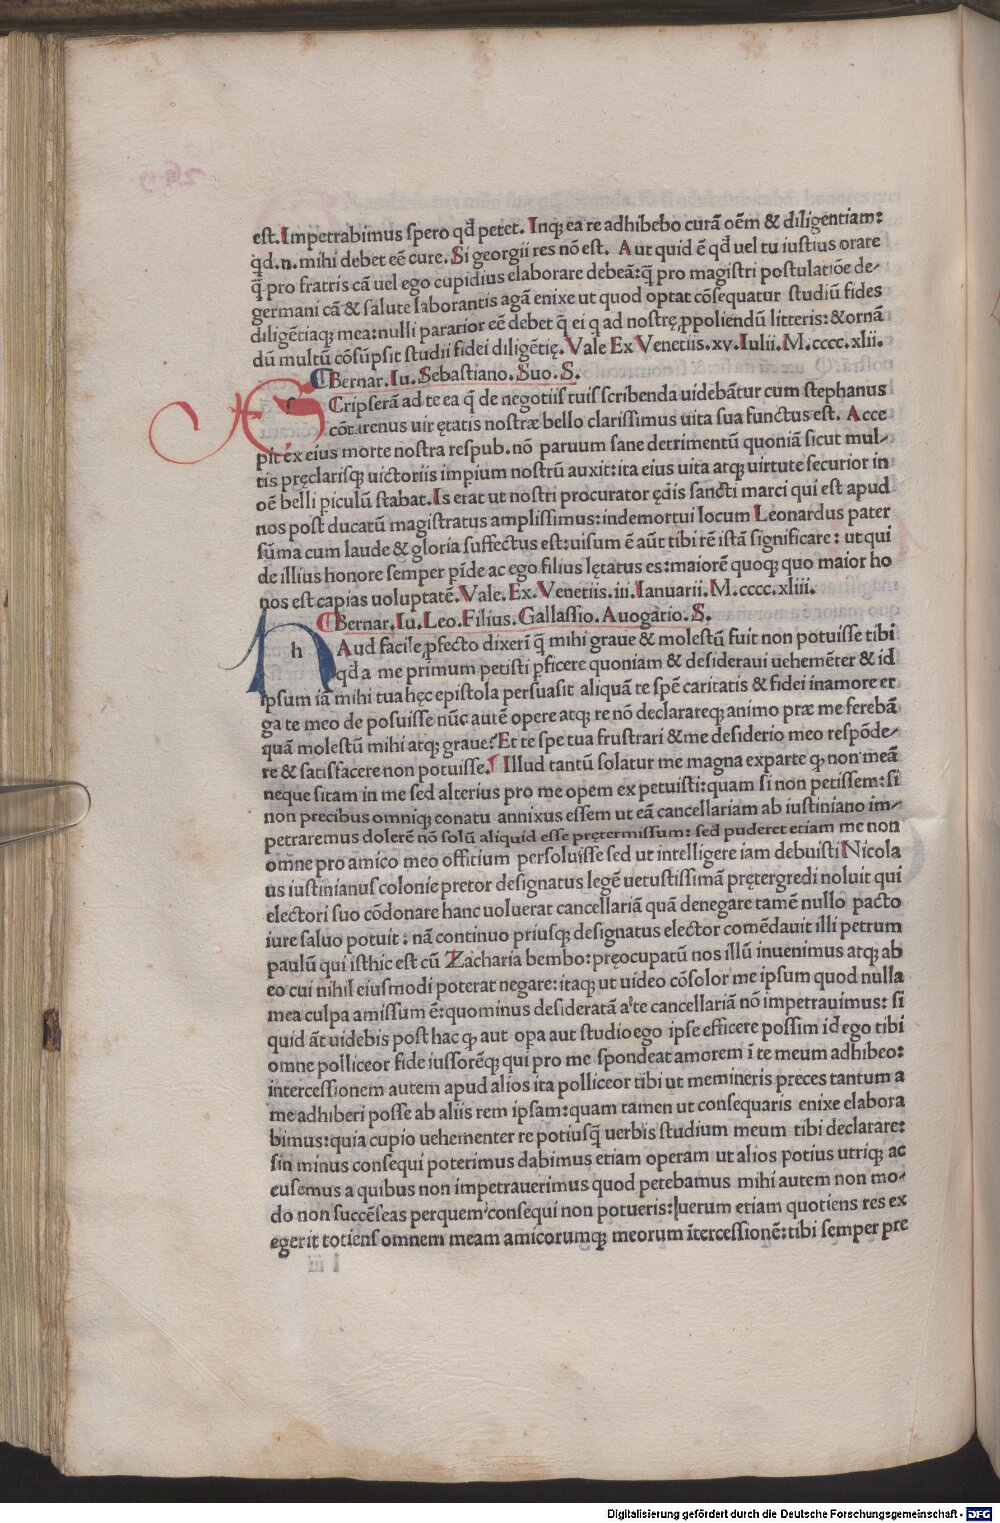 est. Impetrabimus spero qđ petet. Inq; ea re adhibebo curā oēm & diligentiam:
qđ.n. mihi debet eē cure. Si georgii res nō est. Aut quid ē qđ uel tu iustius orare
q̄ pro fratris cā uel ego cupidius elaborare debeā: q̄ pro magistri postulatiōe de-
germani cā & salute laborantis agā enixe ut quod optat cōsequatur studiū fides
diligētiaq; mea: nulli paratior eē debet q̄ ei q ad nostrę ꝓpoliendū litteris: & ornā
dū multū cōsūpsit studii fidei diligētię. Vale Ex Venetiis. xv. Iulii. M. cccc. xlii.
Bernar. Iu. Sebastiano. Suo. S.
Cripserā ad te ea q̄ de negotiis tuis scribenda uidebātur cum stephanus
cōtarenus uir ętatis nostræ bello clarissimus uita sua functus est. Acce
pit ex eius morte nostra respub. nō paruum sane detrimentū quoniā sicut mul-
tis pręclarisq; uictoriis impium nostrū auxit: ita eius uita atq; uirtute securior in
oē belli piculū stabat. Is erat ut nostri procurator ędis sancti marci qui est apud
nos post ducatū magistratus amplissimus: indemortui locum Leonardus pater
sūma cum laude & gloria suffectus est: uisum ē aūt tibi rē istā significare: ut qui
de illius honore semper pīde ac ego filius lętatus es: maiorē quoq; quo maior ho
nos est capias uoluptatē. Vale. Ex. Venetiis. iii. Ianuarii. M. cccc. xliii.
Bernar. Iu. Leo. Filius. Gallassio. Auogario. S.
h Aud facile ꝓfecto dixerī q̄ mihi graue & molestū fuit non potuisse tibi
qđ a me primum petisti pficere quoniam & desideraui uehemēter & id
ipsum iā mihi tua hęc epistola persuasit aliquā te spē caritatis & fidei inamore er
ga te meo de posuisse nūc autē opere atq; re nō declarareq; animo præ me ferebā
quā molestū mihi atq; graue? Et te spe tua frustrari & me desiderio meo respōde-
re & satisfacere non potuisse. Illud tantū solatur me magna exparte q; non meā
neque sitam in me sed alterius pro me opem ex petuisti: quam si non petissem: si
non precibus omniq; conatu annixus essem ut eā cancellariam ab iustiniano im-
petraremus dolerē nō solū aliquid esse prętermissum: sed puderet etiam me non
omne pro amico meo offitium persoluisse sed ut intelligere iam debuisti Nicola
us iustinianus colonie pretor designatus legē uetustissimā prętergredi noluit qui
electori suo cōdonare hanc uoluerat cancellariā quā denegare tamē nullo pacto
iure saluo potuit: nā continuo priusq; designatus elector comēdauit illi petrum
paulū qui isthic est cū Zacharia bembo: pręocupatū nos illū inuenimus atq; ab
eo cui nihil eiusmodi poterat negare: itaq; ut uideo cōsolor me ipsum quod nulla
mea culpa amissum ē: quominus desideratā a te cancellariā nō impetrauimus: si
quid āt uidebis post hac q; aut opa aut studio ego ipse efficere possim id ego tibi
omne polliceor fide iussorēq; qui pro me spondeat amorem ī te meum adhibeo:
intercessionem autem apud alios ita polliceor tibi ut memineris preces tantum a
me adhiberi posse ab aliis rem ipsam: quam tamen ut consequaris enixe elabora
bimus: quia cupio uehementer re potiusq̄ uerbis studium meum tibi declarare:
sin minus consequi poterimus dabimus etiam operam ut alios potius utriq; ac
cusemus a quibus non impetrauerimus quod petebamus mihi autem non mo-
do non succēseas perquem consequi non potueris: uerum etiam quotiens res ex
egerit totiens omnem meam amicorumq; meorum ītercessionē: tibi semper pre
Digitalisierung gefördert durch die Deutsche Forschungsgemeinschaft - DFG